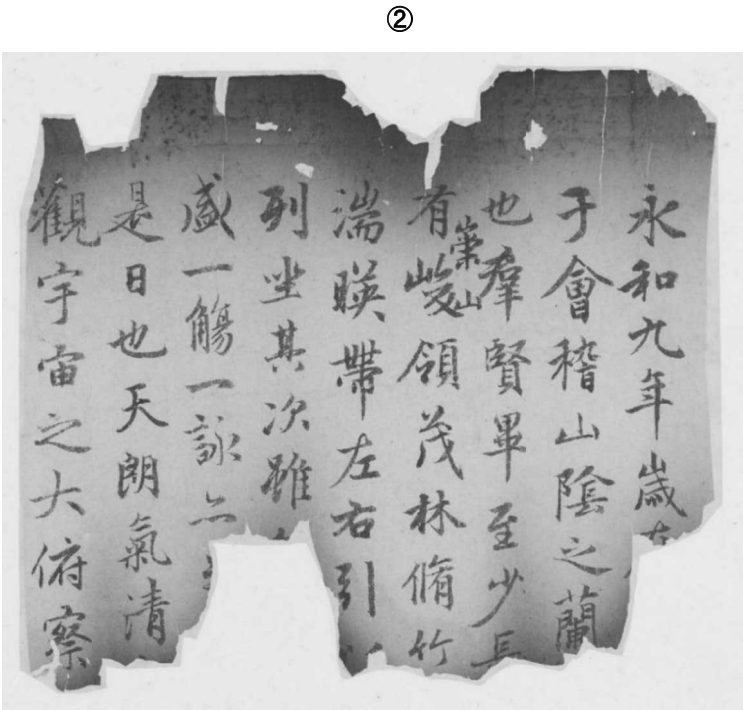 ②
永和九年歲在
于會稽山陰之蘭
也羣賢畢至少長
有崇山峻領茂林脩竹
湍暎帶左右引
列坐其次雖
盛一觴一詠亦
是日也天朗氣清
觀宇宙之大俯察